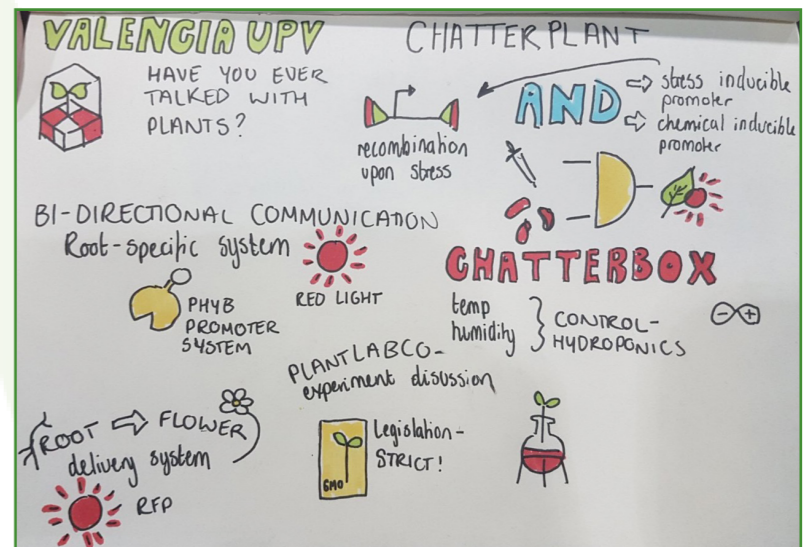 VALENCIA UPV
CHATTERPLANT
HAVE YOU EVER
TALKED WITH
PLANTS?
recombination
upon stress
AND
⇨ stress inducible
promoter
⇨ chemical inducible
promoter
BI-DIRECTIONAL COMMUNICATION
Root-specific system
PHYB
PROMOTER
SYSTEM
RED LIGHT
CHATTERBOX
temp
humidity
CONTROL-
HYDROPONICS
PLANTLABCO-
experiment disussion
ROOT ⇨ FLOWER
delivery system
RFP
GMO
Legislation-
STRICT!